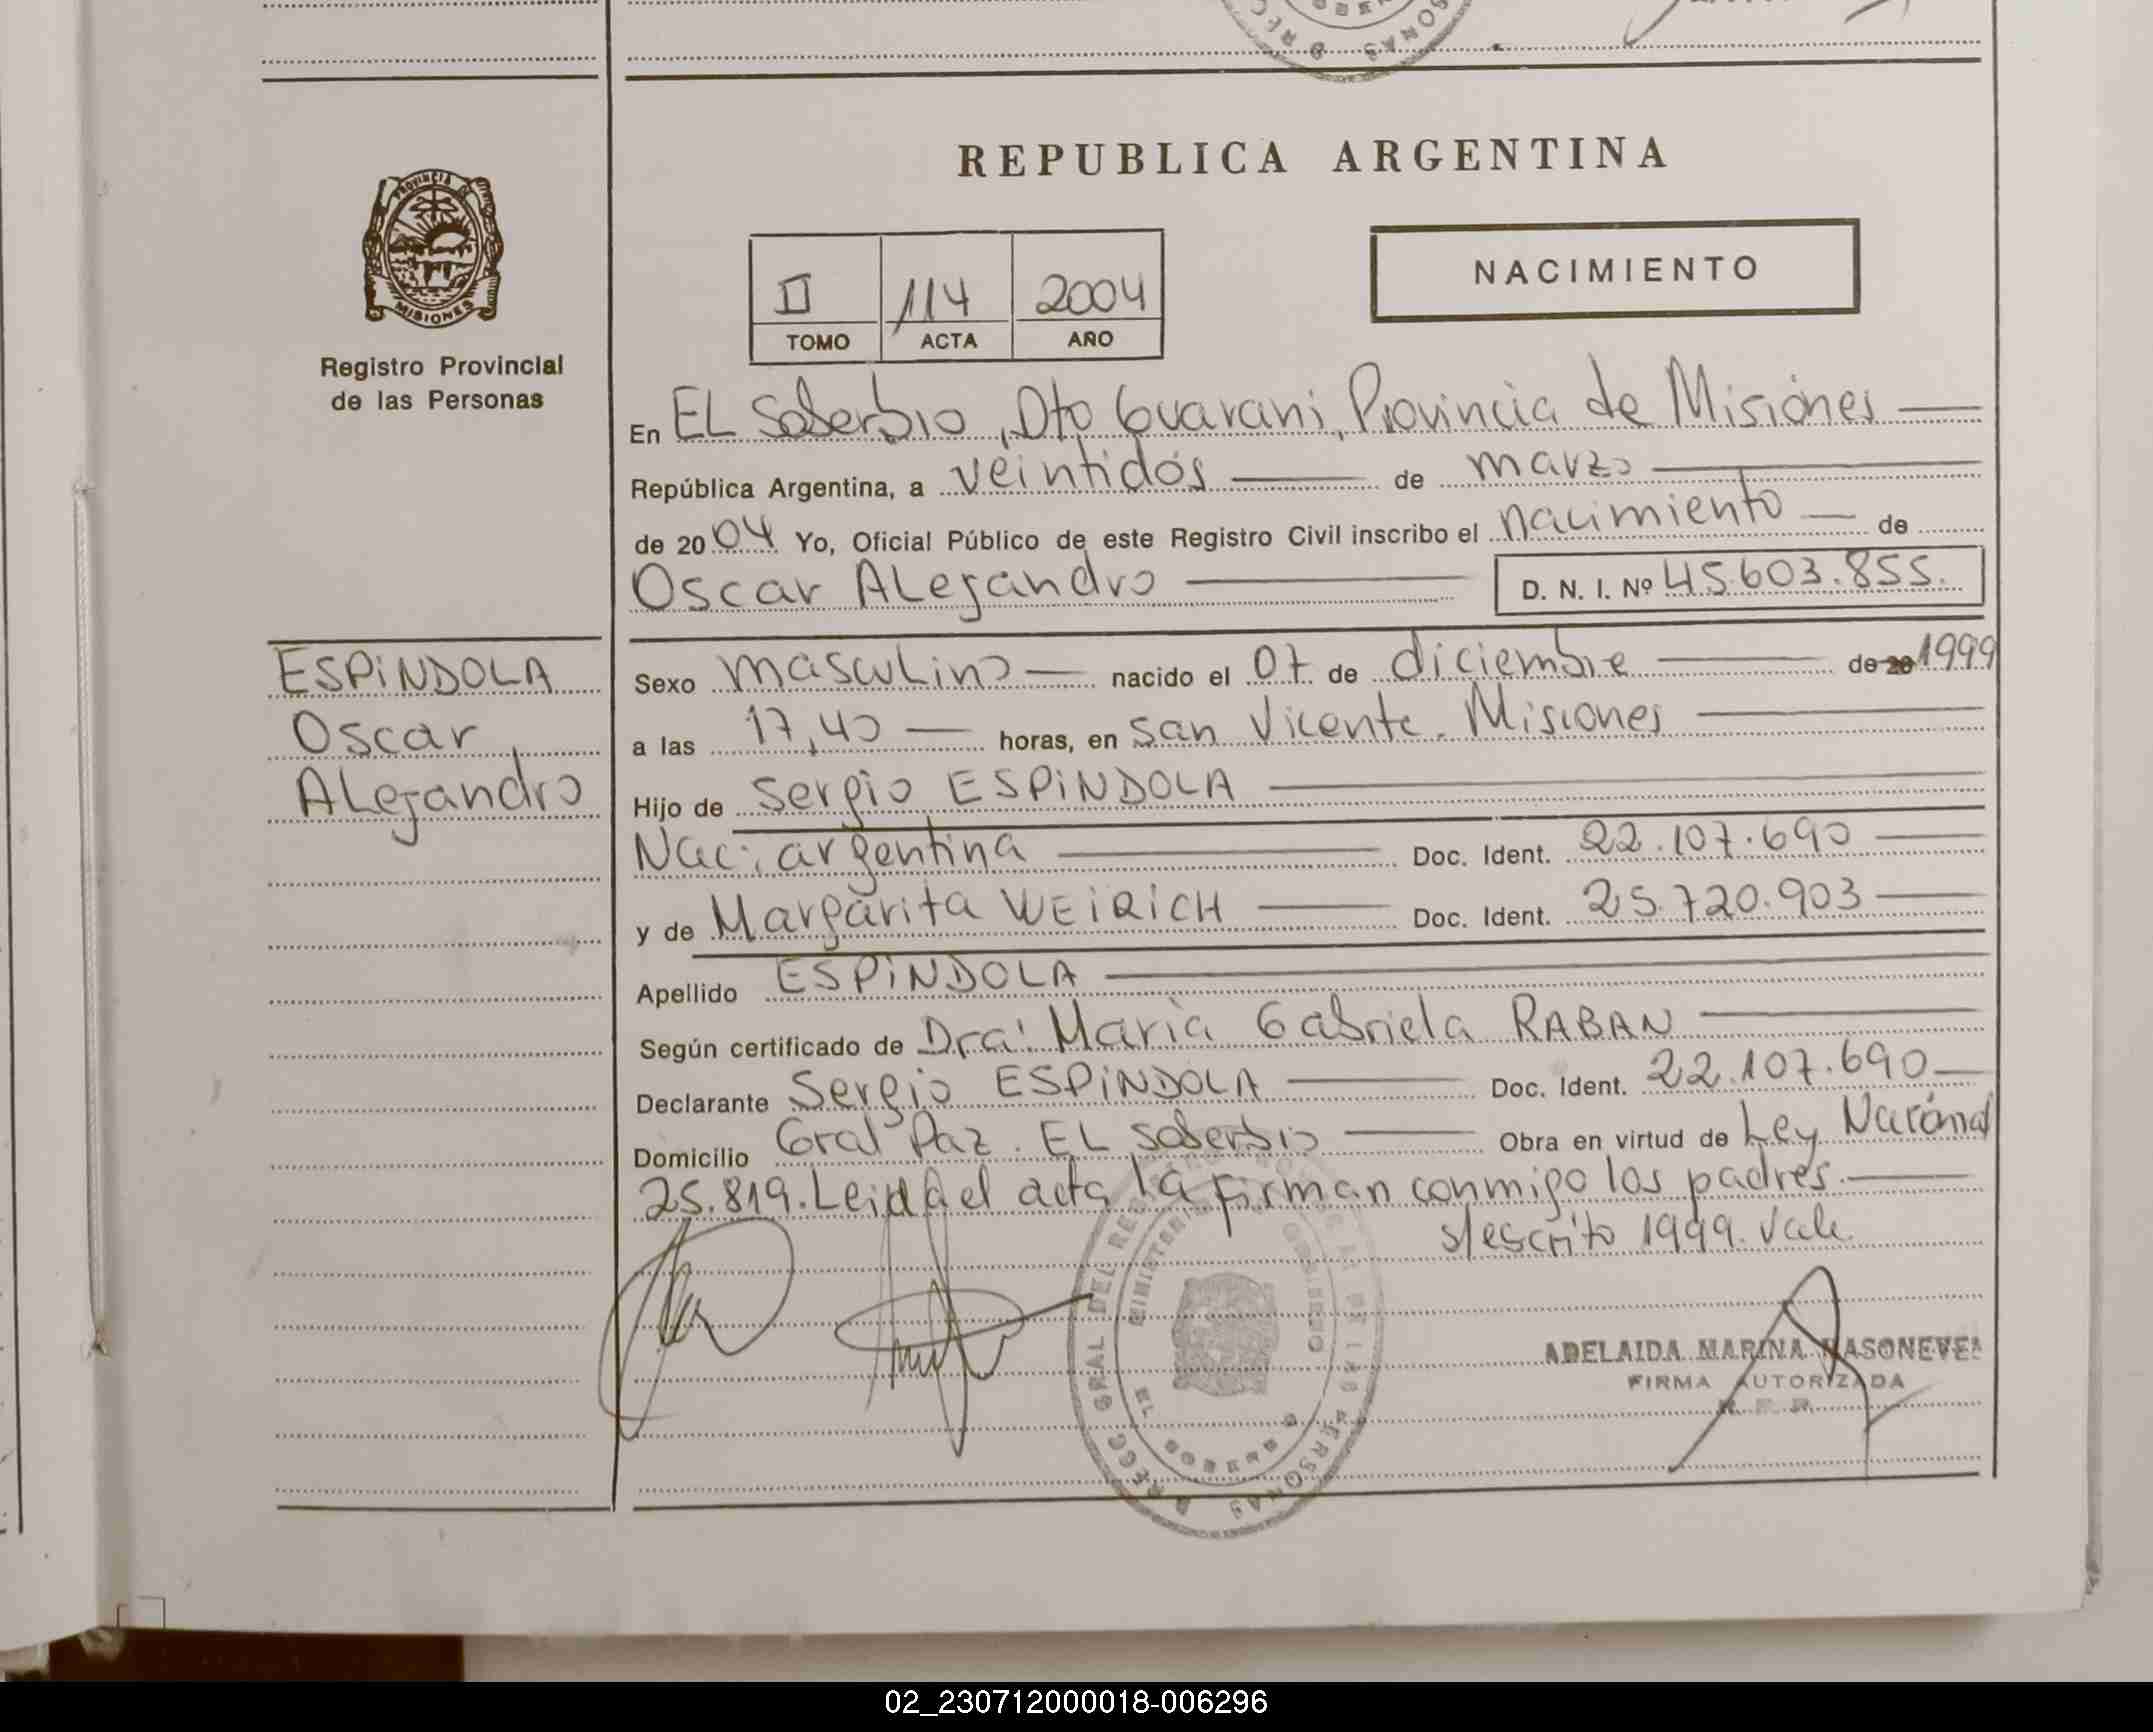 REPUBLICA ARGENTINA
PROVINCIA DE
MISIONES
Registro Provincial
de las Personas
II 114 2004
TOMO ACTA AÑO
NACIMIENTO
En EL Soberbio, Dto Guarani, Provincia de Misiones
República Argentina, a veintidós de marzo
de 2004 Yo, Oficial Público de este Registro Civil inscribo el nacimiento de
Oscar ALejandro D. N. I. Nº 45.603.855.
ESPINDOLA
Oscar
ALejandro
Sexo mascuLino nacido el 07 de diciembre de 20 1999
a las 17,40 horas, en San Vicente. Misiones
Hijo de Sergio ESPINDOLA
Nac: argentina Doc. Ident. 22.107.690
y de Margarita WEIRICH Doc. Ident. 25.720.903
Apellido ESPINDOLA
Según certificado de Dra: Maria Gabriela RABAN
Declarante Sergio ESPINDOLA Doc. Ident. 22.107.690
Domicilio Gral Paz. EL Soberbio Obra en virtud de Ley Nacional
25.819. Leida el acta la firman conmigo los padres.
s/escrito 1999. Vale.
ADELAIDA MARINA
FIRMA AUTORIZADA
02_230712000018-006296